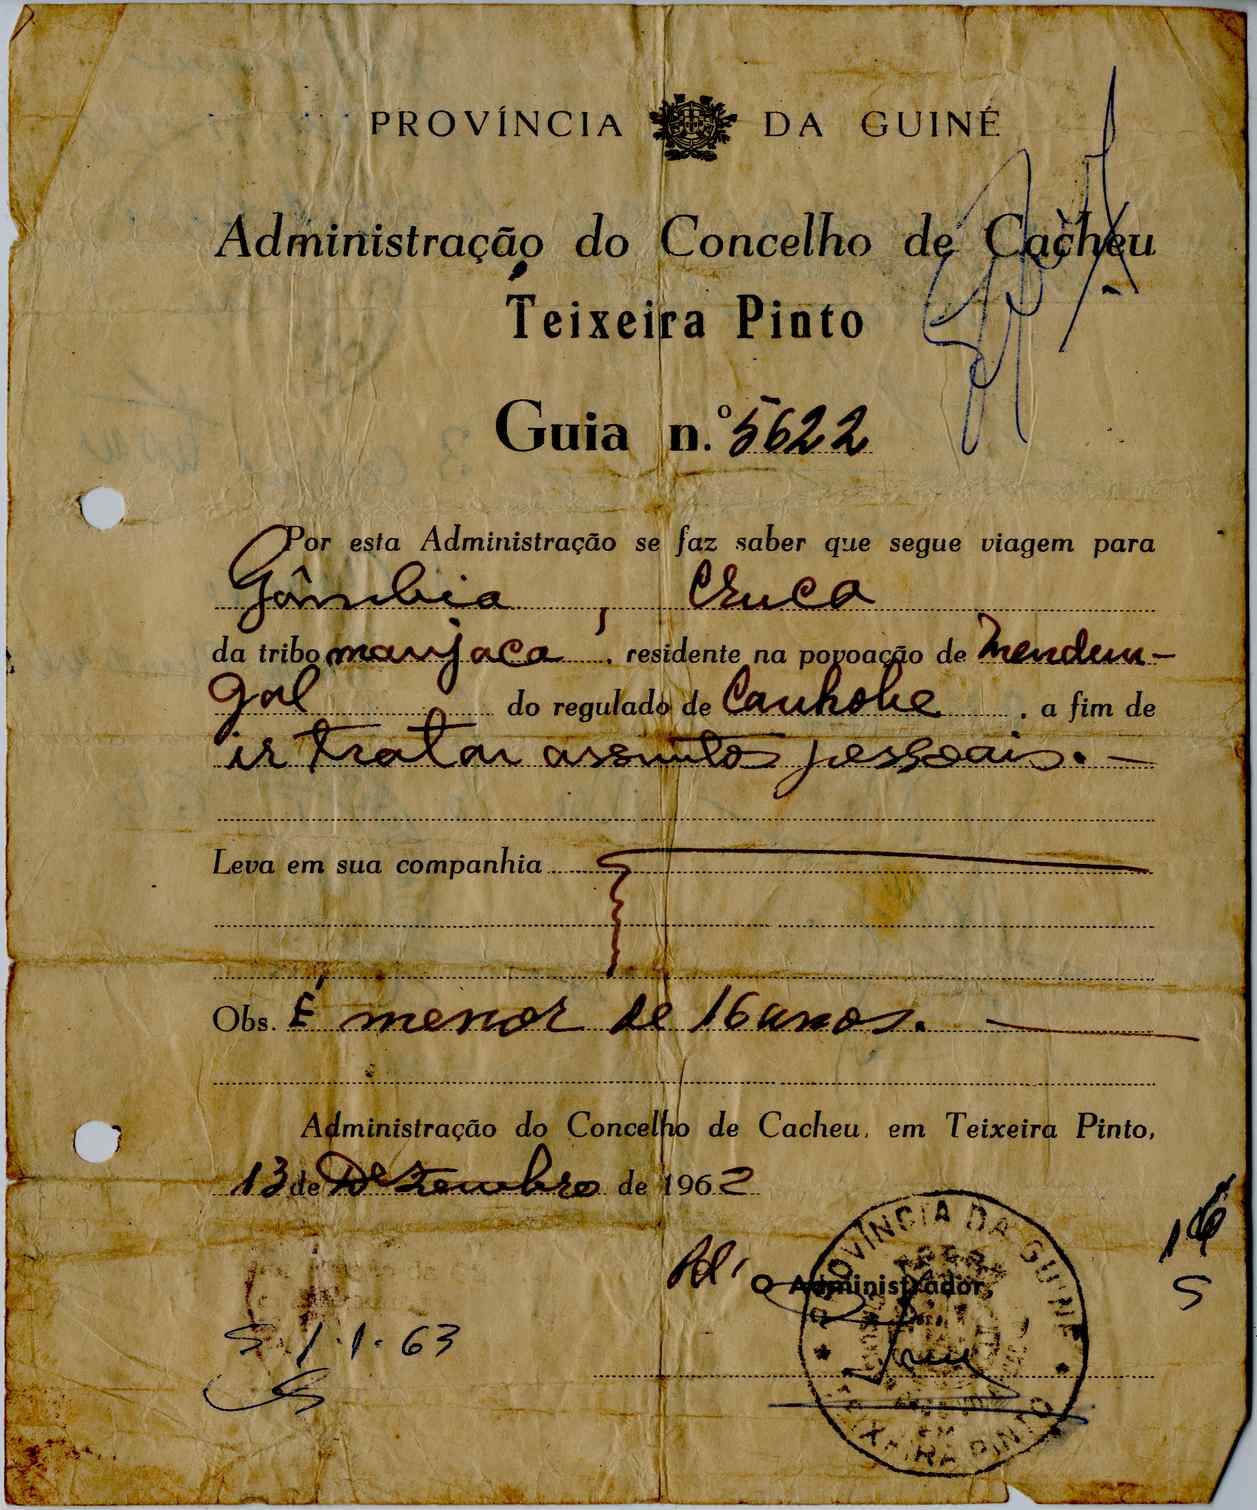 PROVÍNCIA DA GUINÉ
Administração do Concelho de Cacheu
Teixeira Pinto
Guia n.º 5622
Por esta Administração se faz saber que segue viagem para
Gâmbia, Cruca
da tribo manjaca, residente na povoação de Mendem-
gol do regulado de Canhobe, a fim de
ir tratar assuntos pessoais. —
Leva em sua companhia
Obs. É menor de 16 anos. —
Administração do Concelho de Cacheu, em Teixeira Pinto,
13 de Dezembro de 1962
O Administrador,
PROVÍNCIA DA GUINÉ
TEIXEIRA PINTO
S. 1.1.63
16
S